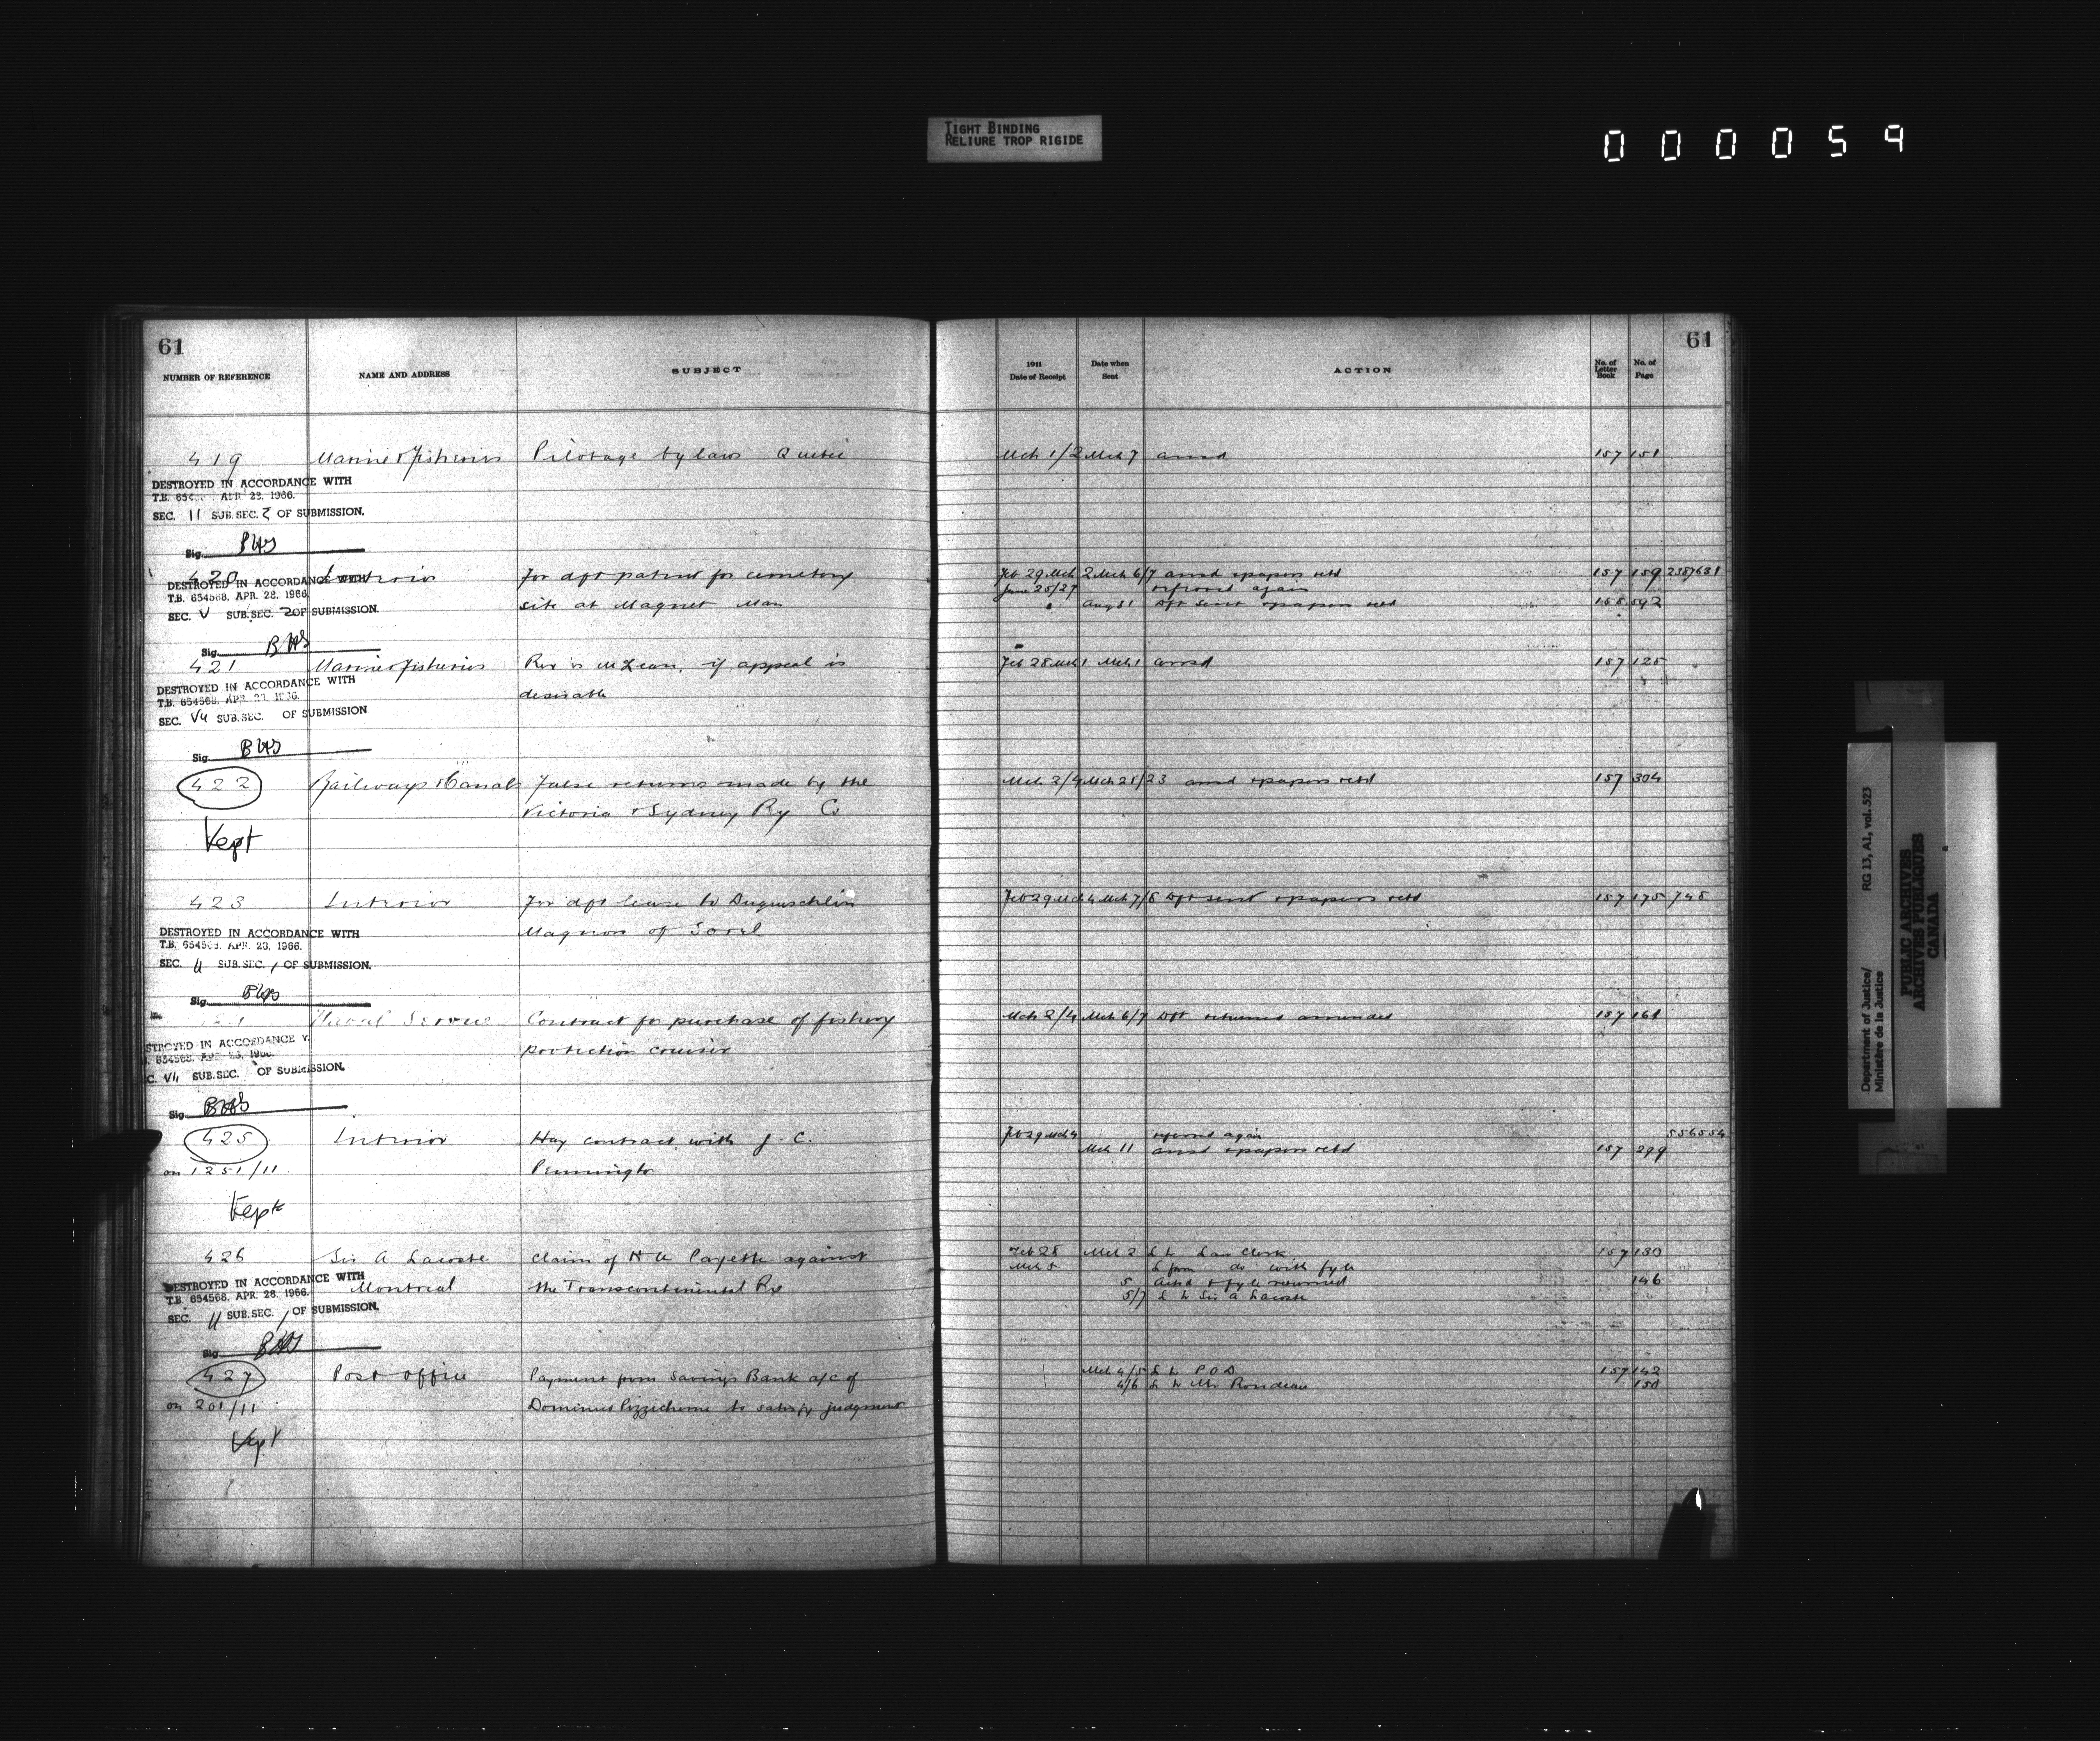 TIGHT BINDING
RELIURE TROP RIGIDE
000059
61
61
NUMBER OF REFERENCE NAME AND ADDRESS SUBJECT
1911 Date of Receipt Date when Sent ACTION No. of Letter Book No. of Page
419 Marine & Fisheries Pilotage by laws Quebec Mch 1/2 Mch 7 ansd 157 151
DESTROYED IN ACCORDANCE WITH
APR 23. 1966.
SEC. 11 SUB.SEC. 2 OF SUBMISSION.
Sig. BHS
420 Interior For dft patent for cemetery Feb 29 Mch 2 Mch 6/7 ansd & papers retd 157 159 2387631
DESTROYED IN ACCORDANCE WITH
T.B. 654568, APR. 28, 1966.
June 25/27 referred again
site at Magnet Man Aug 31 Dft sent & papers retd 158 592
SEC. V SUB.SEC. 2 OF SUBMISSION.
Sig. BHS
421 Marine & Fisheries Rex vs McLean, if appeal is Feb 28 Mch 1 Mch 1 ansd 157 125
desirable
DESTROYED IN ACCORDANCE WITH
T.B. 654568, APR. 23, 1966.
SEC. V11 SUB.SEC. OF SUBMISSION
Sig. BHS
422 Railways & Canals False returns made by the Mch 2/4 Mch 21/23 ansd & papers retd 157 304
Victoria & Sydney Ry Co
Kept
423 Interior For dft lease to Duguesclin Feb 29 Mch 4 Mch 7/8 Dft sent & papers retd 157 175 748
Magnon of Sorel
DESTROYED IN ACCORDANCE WITH
T.B. 654568, APR. 23, 1966.
SEC. 11 SUB.SEC. 1 OF SUBMISSION.
Sig. BHS
Naval Service Contract for purchase of fishery Mch 2/4 Mch 6/7 Dft returned amended 157 161
protection cruiser
STROYED IN ACCORDANCE
SUB.SEC. OF SUBMISSION.
Sig. BHS
425 Interior Hay contract with J. C. Feb 29 Mch 4 referred again 556554
Mch 11 ansd & papers retd 157 299
on 1251/11 Pennington
Kept
426 Sir A Lacoste Claim of H A Payette against Feb 28 Mch 2 L to Law Clerk 157 130
Mch 5 L from do with fyle
Montreal the Transcontinental Ry 5 Actd & fyle returned 146
5/7 L to Sir A Lacoste
DESTROYED IN ACCORDANCE WITH
T.B. 654568, APR. 28, 1966.
SEC. 11 SUB.SEC. 1 OF SUBMISSION.
Sig. BHS
427 Post Office Payment from Savings Bank a/c of Mch 4/5 L to P O D 157 142
4/6 L to Mr Rondeau 150
on 201/11 to satisfy judgment
Kept
Department of Justice/
Ministère de la Justice
RG 13, A1, vol. 523
PUBLIC ARCHIVES
ARCHIVES PUBLIQUES
CANADA